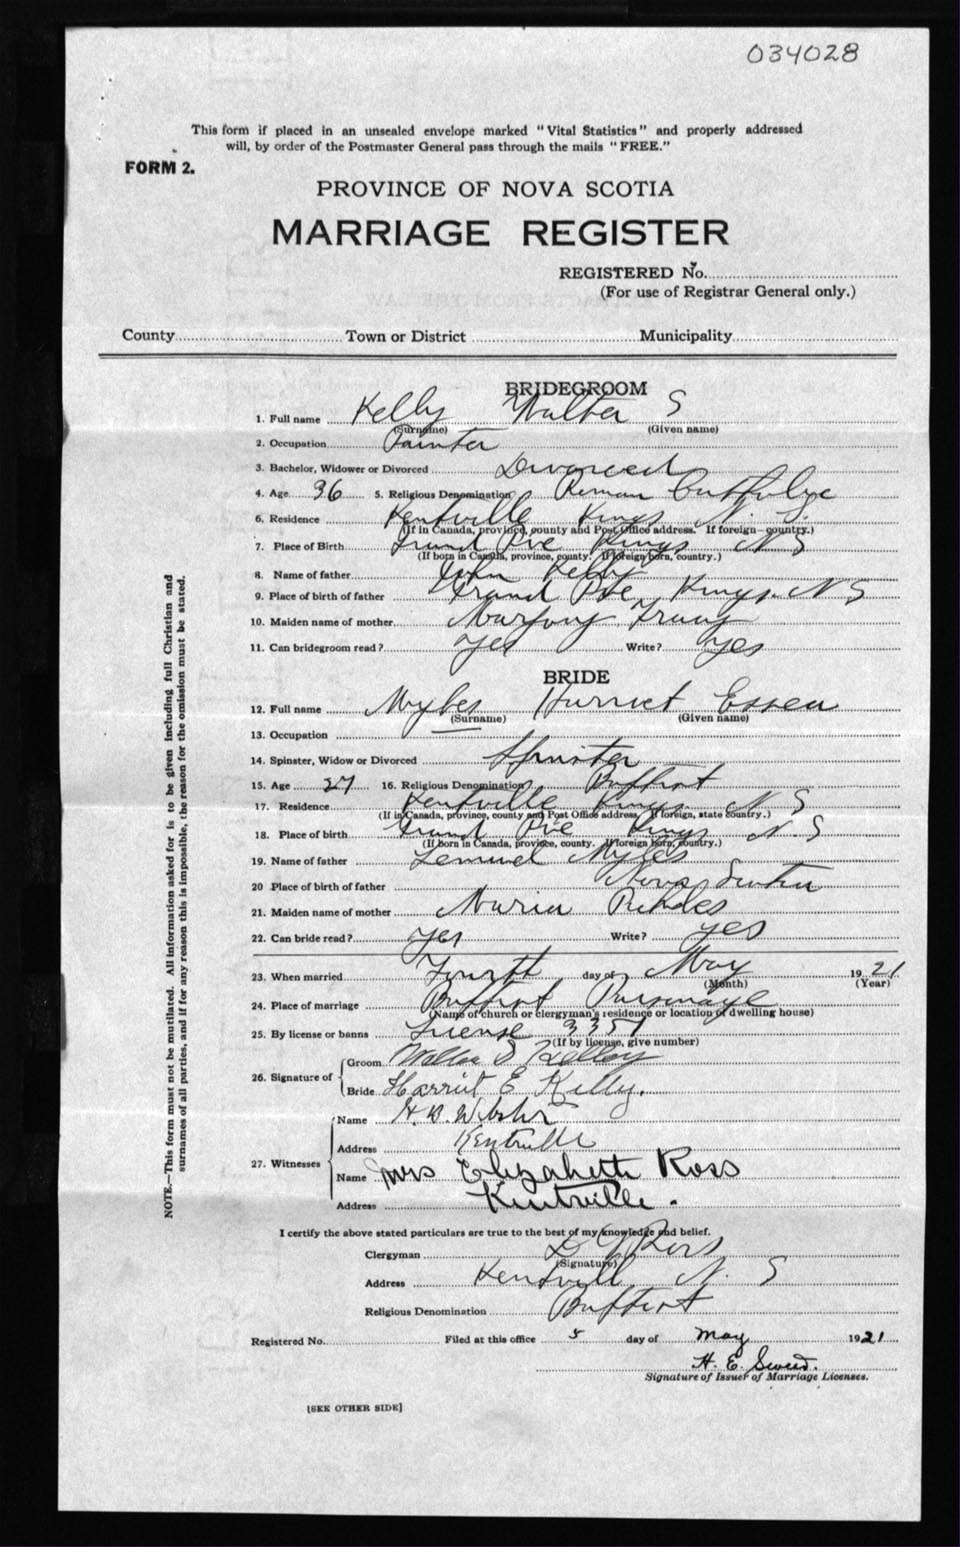 034028
This form if placed in an unsealed envelope marked "Vital Statistics" and properly addressed
will, by order of the Postmaster General pass through the mails "FREE."
FORM 2.
PROVINCE OF NOVA SCOTIA
MARRIAGE REGISTER
REGISTERED No.
(For use of Registrar General only.)
County Town or District Municipality
BRIDEGROOM
1. Full name Kelly Walter S
(Surname) (Given name)
2. Occupation Painter
3. Bachelor, Widower or Divorced Divorced
4. Age 36 5. Religious Denomination Roman
6. Residence Kentville Kings N. S.
(If in Canada, province, county and Post Office address. If foreign—country.)
7. Place of Birth Grand Pre Kings N S
(If born in Canada, province, county. If foreign born, country.)
8. Name of father John Kelly
9. Place of birth of father Grand Pre Kings N S
10. Maiden name of mother
11. Can bridegroom read? Yes Write? Yes
BRIDE
12. Full name Myles Harriet
(Surname) (Given name)
13. Occupation
14. Spinster, Widow or Divorced Spinster
15. Age 27 16. Religious Denomination Baptist
17. Residence Kentville Kings N S
(If in Canada, province, county and Post Office address. If foreign, state country.)
18. Place of birth Grand Pre Kings N. S
(If born in Canada, province, county. If foreign born, country.)
19. Name of father Lemuel Myles
20 Place of birth of father Nova Scotia
21. Maiden name of mother Maria
22. Can bride read? yes Write? yes
23. When married Fourth day of May 1921
(Month) (Year)
24. Place of marriage Baptist Parsonage
(Name of church or clergyman's residence or location of dwelling house)
25. By license or banns License 3351
(If by license, give number)
26. Signature of Groom Walter S Kelley
Bride Harriet E Kelly.
27. Witnesses Name H. B. Webster
Address Kentville
Name Mrs Elizabeth Ross
Address Kentville.
I certify the above stated particulars are true to the best of my knowledge and belief.
Clergyman Ross
(Signature)
Address Kentvill N. S
Religious Denomination Baptist
Registered No. Filed at this office 5 day of May 1921
H. E.
Signature of Issuer of Marriage Licenses.
[SEE OTHER SIDE]
NOTE.—This form must not be mutilated. All information asked for is to be given including full Christian and
surnames of all parties, and if for any reason this is impossible, the reason for the omission must be stated.